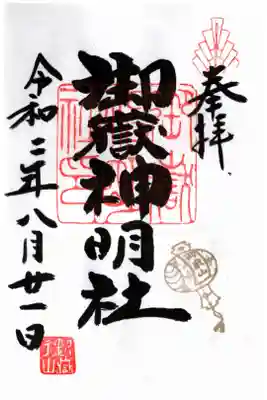 奉拝
御嶽神明社
令和二年八月廿一日